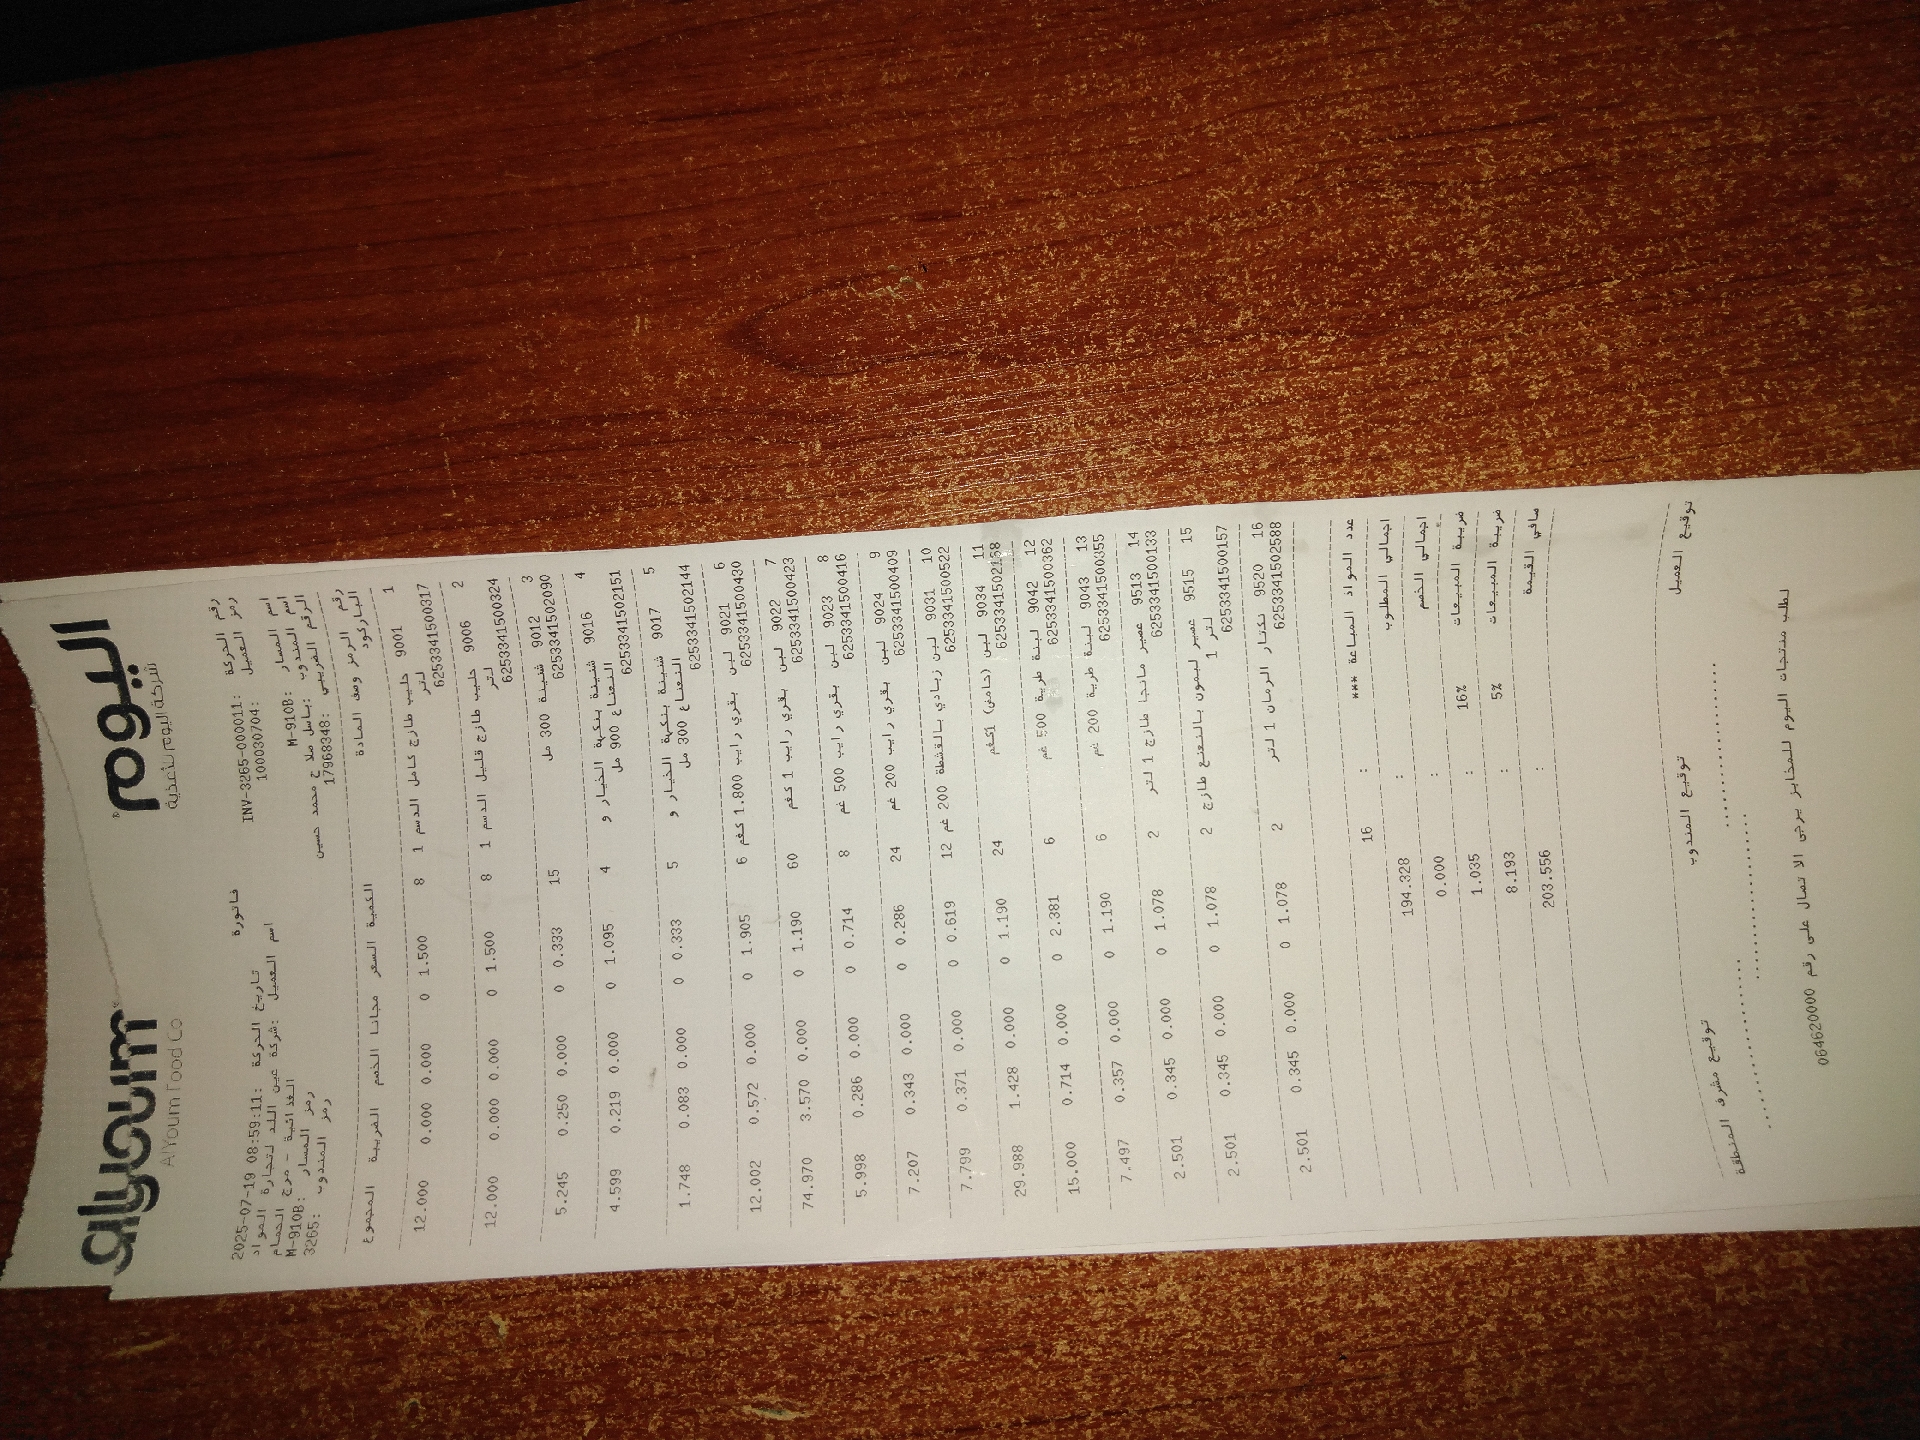 alyoum اليوم
AlYoum Food Co شركة اليوم للأغذية
فاتورة
رقم الحركة :INV-3265-000011 تاريخ الحركة :2025-07-19 08:59:11
رمز العميل :100030704 اسم العميل :شركة عين اللد لتجارة المواد
الغذائية - مرج الحمام
اسم المسار :M-910B رمز المسار :M-910B
اسم المندوب :باسل ملاح محمد حسين رمز المندوب :3265
الرقم الضريبي :17968348
رقم الرمز وصف المادة الكمية السعر مجانا الخصم الضريبة المجموع
الباركود
1 9001 حليب طازج كامل الدسم 1 8 1.500 0 0.000 0.000 12.000
لتر
6253341500317
2 9006 حليب طازج قليل الدسم 1 8 1.500 0 0.000 0.000 12.000
لتر
6253341500324
3 9012 شنينة 300 مل 15 0.333 0 0.000 0.250 5.245
6253341502090
4 9016 شنينة بنكهة الخيار و 4 1.095 0 0.000 0.219 4.599
النعناع 900 مل
6253341502151
5 9017 شنينة بنكهة الخيار و 5 0.333 0 0.000 0.083 1.748
النعناع 300 مل
6253341502144
6 9021 لبن بقري رايب 1.800 كغم 6 1.905 0 0.000 0.572 12.002
6253341500430
7 9022 لبن بقري رايب 1 كغم 60 1.190 0 0.000 3.570 74.970
6253341500423
8 9023 لبن بقري رايب 500 غم 8 0.714 0 0.000 0.286 5.998
6253341500416
9 9024 لبن بقري رايب 200 غم 24 0.286 0 0.000 0.343 7.207
6253341500409
10 9031 لبن زبادي بالقشطة 200 غم 12 0.619 0 0.000 0.371 7.799
6253341500522
11 9034 لبن (حامض) 1كغم 24 1.190 0 0.000 1.428 29.988
6253341502168
12 9042 لبنة طرية 500 غم 6 2.381 0 0.000 0.714 15.000
6253341500362
13 9043 لبنة طرية 200 غم 6 1.190 0 0.000 0.357 7.497
6253341500355
14 9513 عصير مانجا طازج 1 لتر 2 1.078 0 0.000 0.345 2.501
6253341500133
15 9515 عصير ليمون بالنعنع طازج 2 1.078 0 0.000 0.345 2.501
1 لتر
6253341500157
16 9520 نكتار الرمان 1 لتر 2 1.078 0 0.000 0.345 2.501
6253341502588
عدد المواد المباعة *** : 16
اجمالي المطلوب : 194.328
اجمالي الخصم : 0.000
ضريبة المبيعات 16% : 1.035
ضريبة المبيعات 5% : 8.193
صافي القيمة : 203.556
توقيع العميل توقيع المندوب توقيع مشرف المنطقة
لطلب منتجات اليوم للمخابز يرجى الاتصال على رقم 064620000